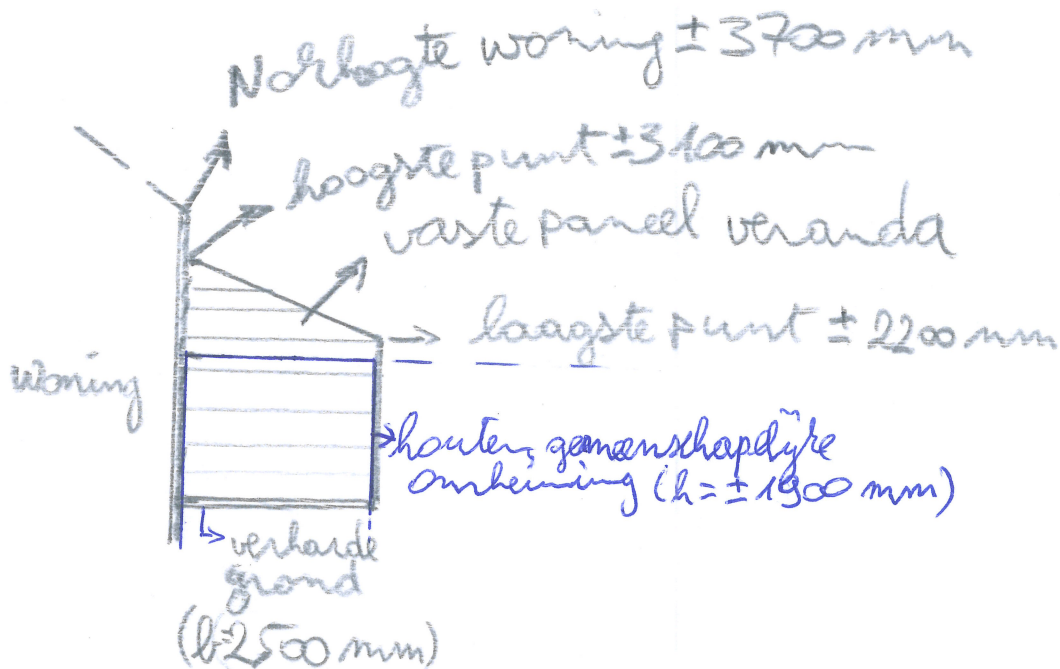 Nokhoogte woning ± 3700 mm
hoogste punt ± 3100 mm
vaste paneel veranda
laagste punt ± 2200 mm
woning
houten, gemeenschaplijke
omheining (h = ± 1900 mm)
verharde
grond
(b ± 2500 mm)